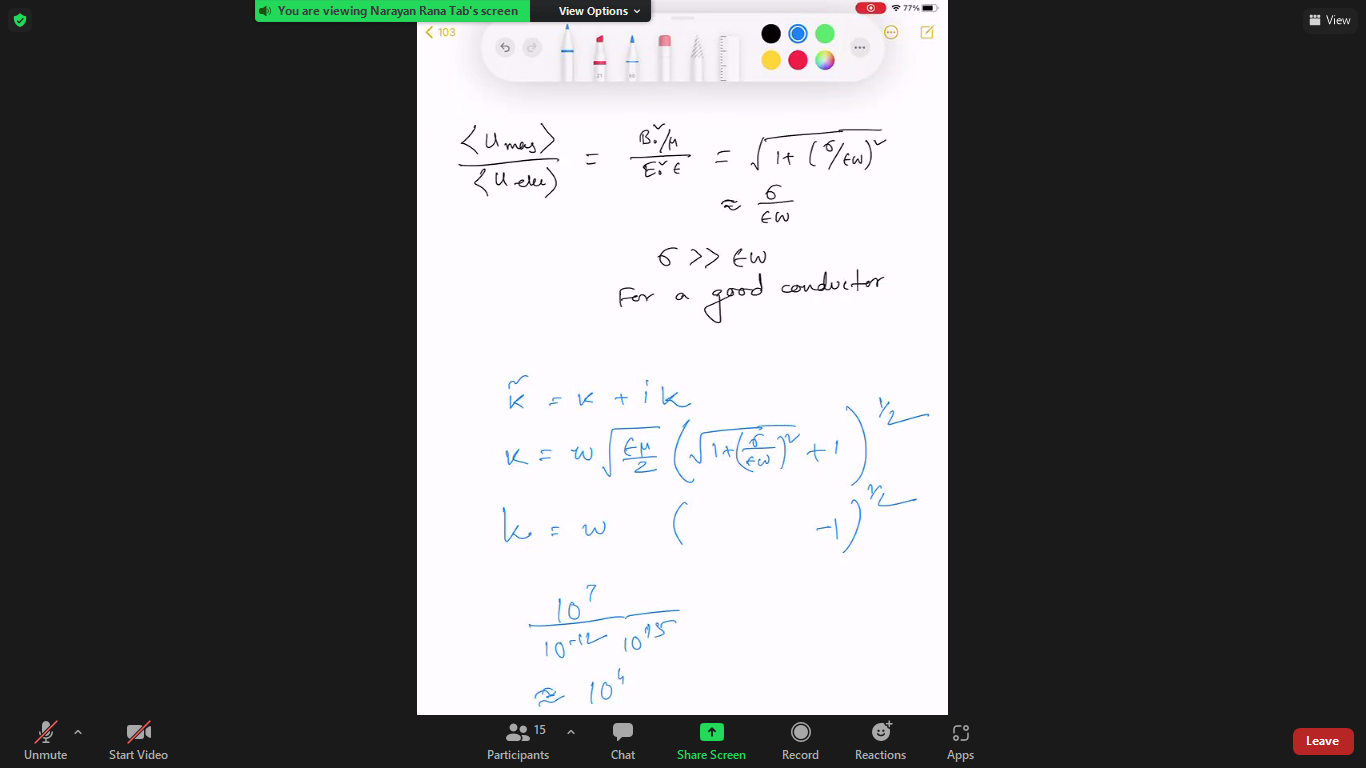 You are viewing Narayan Rana Tab's screen
View Options
77%
View
103
⟨U mag⟩ / ⟨U elec⟩ = (B₀²/μ) / (E₀² ϵ) = √(1 + (σ/ϵω)²)
≈ σ/ϵω
σ >> ϵω
For a good conductor
k̃ = k + i k
k = ω √(ϵμ/2) (√(1+(σ/ϵω)²) + 1)^1/2
k = ω ( -1)^1/2
10⁷ / 10⁻¹² 10¹⁵
≈ 10⁴
Unmute
Start Video
Participants
15
Chat
Share Screen
Record
Reactions
Apps
Leave